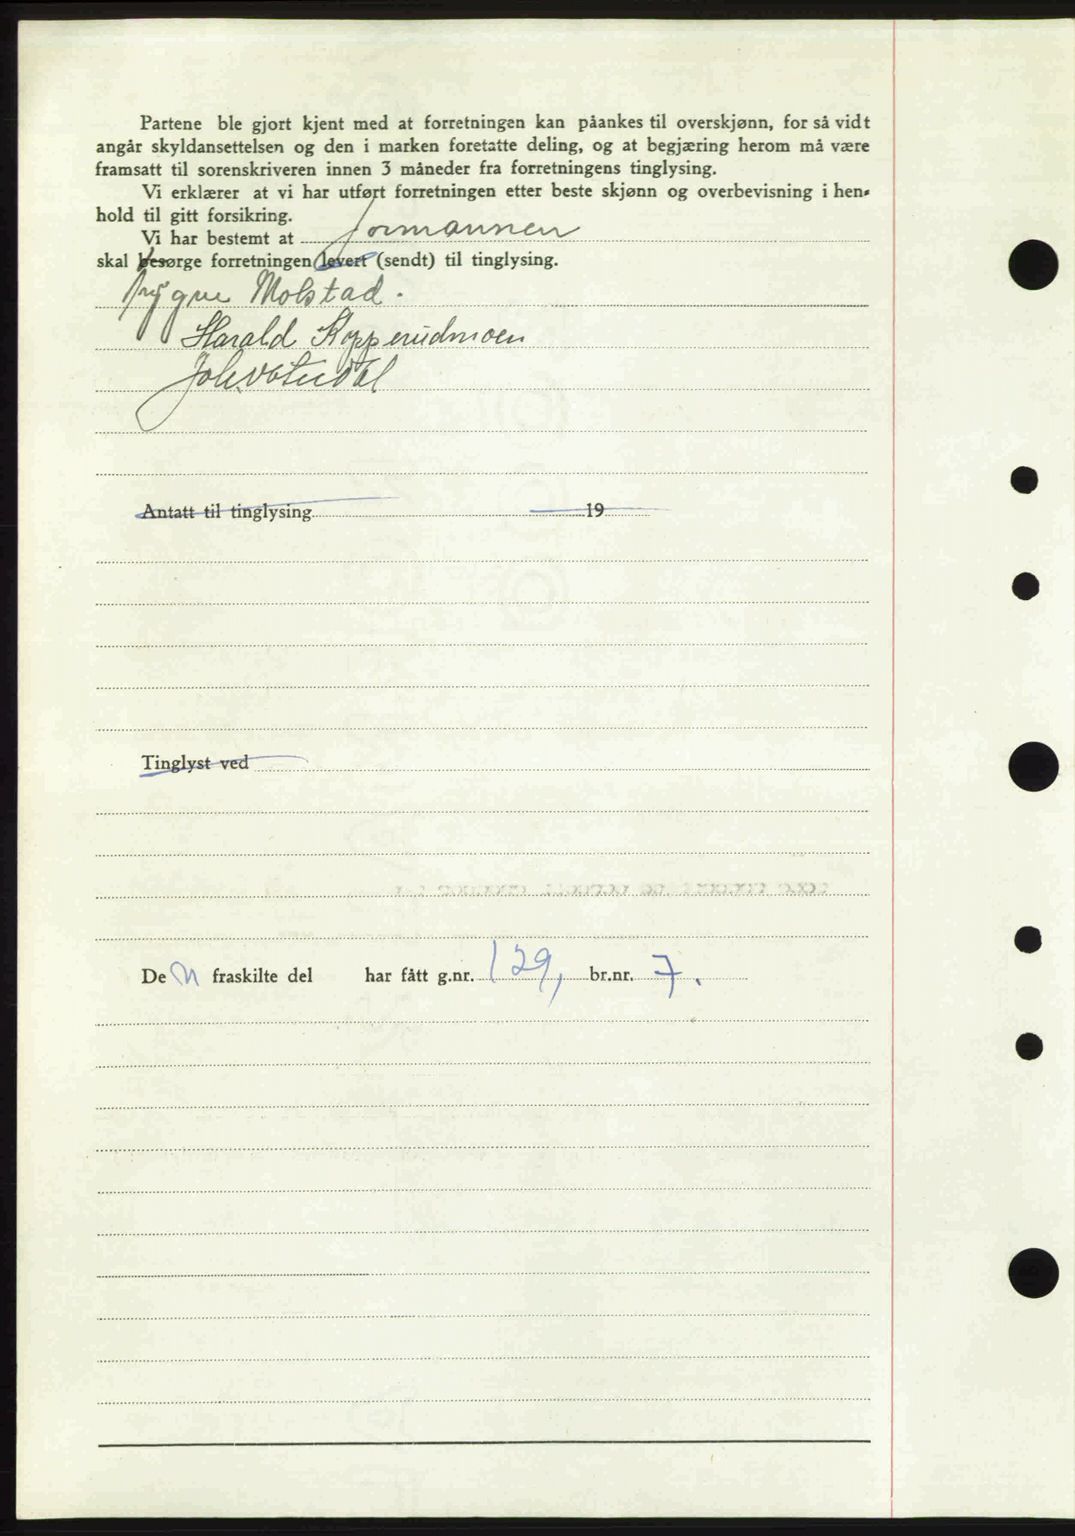 Partene ble gjort kjent med at forretningen kan påankes til overskjønn, for så vidt
angår skyldansettelsen og den i marken foretatte deling, og at begjæring herom må være
framsatt til sorenskriveren innen 3 måneder fra forretningens tinglysing.
Vi erklærer at vi har utført forretningen etter beste skjønn og overbevisning i hen-
hold til gitt forsikring.
Vi har bestemt at formannen
skal besørge forretningen (levert (sendt) til tinglysing.
Trygve Molstad.
Harald Kopperudmoen
Antatt til tinglysing 19
Tinglyst ved
De n fraskilte del har fått g.nr. 129, br.nr. 7.